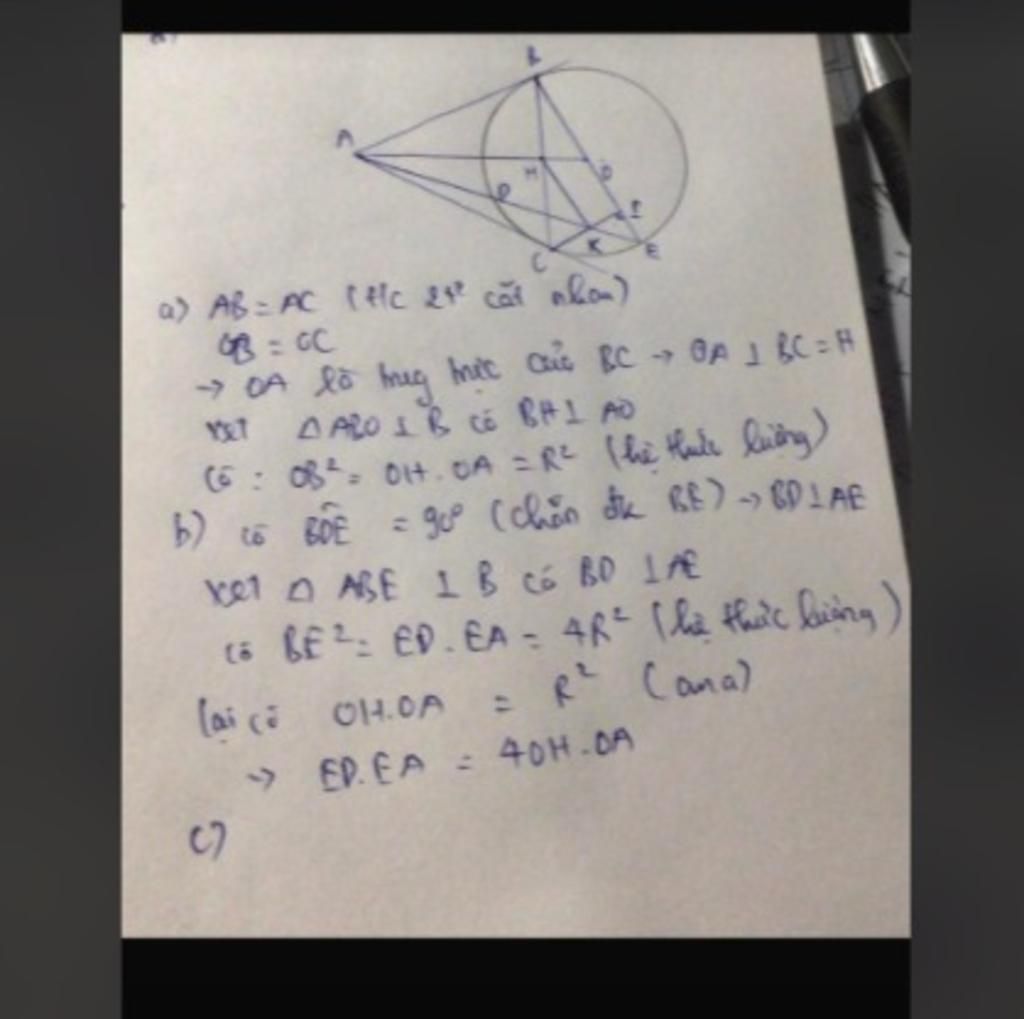 B
A
H
O
D
I
K
C
E
a) AB = AC (t/c 2tt cắt nhau)
OB = OC
→ OA là trug trực của BC → OA ⊥ BC = H
xét △ ABO ⊥ B có BH ⊥ AO
Có : OB² = OH . OA = R² (hệ thức lượng)
b) có BDE = 90° (chắn đk BE) → BD ⊥ AE
xét △ ABE ⊥ B có BD ⊥ AE
có BE² = ED . EA = 4R² (hệ thức lượng)
lại có OH.OA = R² (ana)
→ ED.EA = 4OH.OA
c)